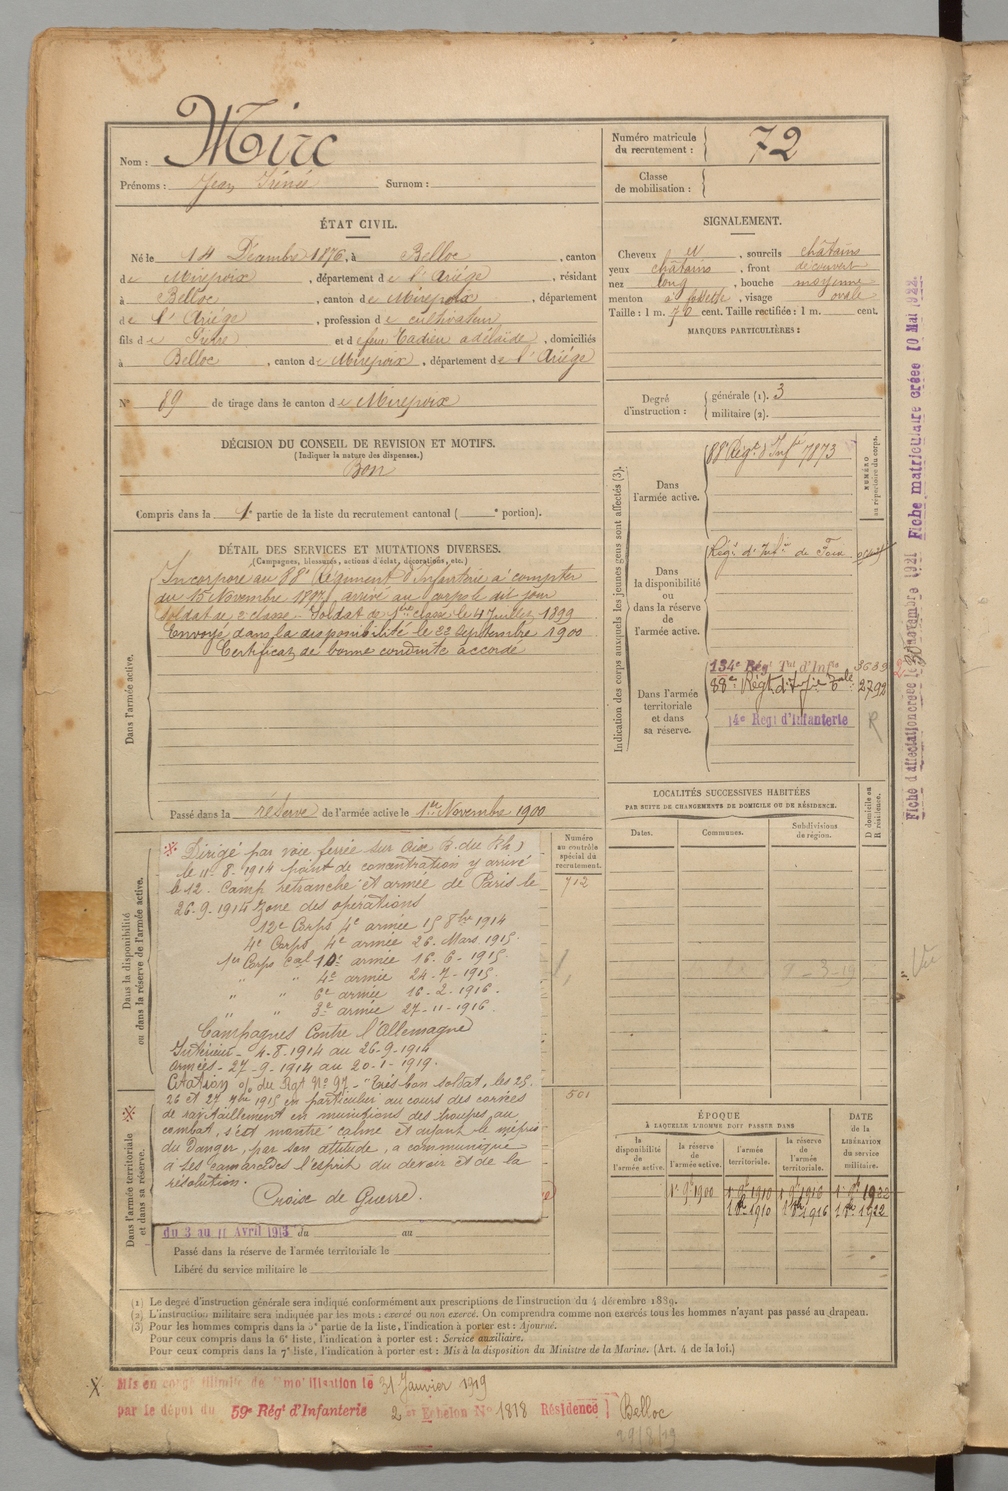 Nom : Mirc
Prénoms : Jean Irénée Surnom :
Numéro matricule du recrutement : 72
Classe de mobilisation :
ÉTAT CIVIL.
Né le 14 Décembre 1876, à Belloc, canton
de Mirepoix, département de l'Ariège, résidant
à Belloc, canton de Mirepoix, département
de l'Ariège, profession de cultivateur
fils de et de feue Cadieu adélaïde, domiciliés
à Belloc, canton de Mirepoix, département de l'Ariège
N° 89 de tirage dans le canton de Mirepoix
SIGNALEMENT.
Cheveux et, sourcils châtains
yeux châtains, front découvert
nez long, bouche moyenne
menton à fossette, visage ovale
Taille : 1 m. 70 cent. Taille rectifiée : 1 m. cent.
MARQUES PARTICULIÈRES :
Degré d'instruction : générale (1). 3
militaire (2).
DÉCISION DU CONSEIL DE REVISION ET MOTIFS.
(Indiquer la nature des dispenses.)
Bon
Compris dans la 1e partie de la liste du recrutement cantonal ( e portion).
DÉTAIL DES SERVICES ET MUTATIONS DIVERSES.
(Campagnes, blessures, actions d'éclat, décorations, etc.)
Dans l'armée active.
Incorporé au 88e Régiment d'Infanterie à compter
du 15 Novembre 1897, arrivé au corps le dit jour
soldat de 2e classe. Soldat de 1ère classe le 4 Juillet 1899
Envoyé dans la disponibilité le 22 Septembre 1900
Certificat de bonne conduite accordé
Passé dans la réserve de l'armée active le 1er Novembre 1900
Indication des corps auxquels les jeunes gens sont affectés (3).
NUMÉRO au répertoire du corps.
Dans l'armée active.
88 Régt d'Infie 7173
Dans la disponibilité ou dans la réserve de l'armée active.
Régt d'Infie de Foix
Dans l'armée territoriale et dans sa réserve.
134e Régt Tal d'Infie 3639
88e Régt d'Infie 2792
14e Regt d'Infanterie R
LOCALITÉS SUCCESSIVES HABITÉES
PAR SUITE DE CHANGEMENTS DE DOMICILE OU DE RÉSIDENCE.
Dates. Communes. Subdivisions de région. D domicile ou R résidence.
Dans la disponibilité ou dans la réserve de l'armée active.
Numéro au contrôle spécial du recrutement.
712
501
Dirigé par voie ferrée sur Aix (B. du Rh.)
le 11-8-1914 point de concentration y arrivé
le 12. Camp retranché et armée de Paris le
26-9-1914 Zone des opérations
12e Corps 4e armée 15 8bre 1914
4e Corps 4e armée 26 Mars 1915
1er Corps Cal 10e armée 16-6-1915
" " 4e armée 24-7-1915
" " 6e armée 16-2-1916
" " 3e armée 27-11-1916
Campagnes Contre l'Allemagne
Intérieur - 4-8-1914 au 26-9-1914
armées - 27-9-1914 au 20-1-1919.
Citation o/ du Rgt N° 97 - "Très bon soldat, les 25.
26 et 27 7bre 1915 en particulier au cours des corvées
de ravitaillement en munitions des troupes au
combat, s'est montré calme et disant le mépris
du Danger, par son attitude, a communiqué
à ses camarades l'esprit du devoir et de la
résolution.
Croix de Guerre.
Dans l'armée territoriale et dans sa réserve.
du 3 au 11 Avril 1913 du au
Passé dans la réserve de l'armée territoriale le
Libéré du service militaire le
ÉPOQUE
À LAQUELLE L'HOMME DOIT PASSER DANS
la disponibilité de l'armée active. la réserve de l'armée active. l'armée territoriale. la réserve de l'armée territoriale.
DATE de la LIBÉRATION du service militaire.
1er 9bre 1900 1er 9bre 1910 1er 9bre 1916 1er 9bre 1922
1er 8bre 1910 1er 8bre 1916 1er 8bre 1922
(1) Le degré d'instruction générale sera indiqué conformément aux prescriptions de l'instruction du 4 décembre 1889.
(2) L'instruction militaire sera indiquée par les mots : exercé ou non exercé. On comprendra comme non exercés tous les hommes n'ayant pas passé au drapeau.
(3) Pour les hommes compris dans la 5e partie de la liste, l'indication à porter est : Ajourné.
Pour ceux compris dans la 6e liste, l'indication à porter est : Service auxiliaire.
Pour ceux compris dans la 7e liste, l'indication à porter est : Mis à la disposition du Ministre de la Marine. (Art. 4 de la loi.)
Mis en congé illimité de démobilisation le 31 Janvier 1919
par le dépôt du 59e Régt d'Infanterie 2 Echelon N° 1818 Résidence Belloc
29/8/19
Fiche d'affectation créée le 30 novembre 1921 Fiche matriculaire créée 10 Mai 1922
Vu